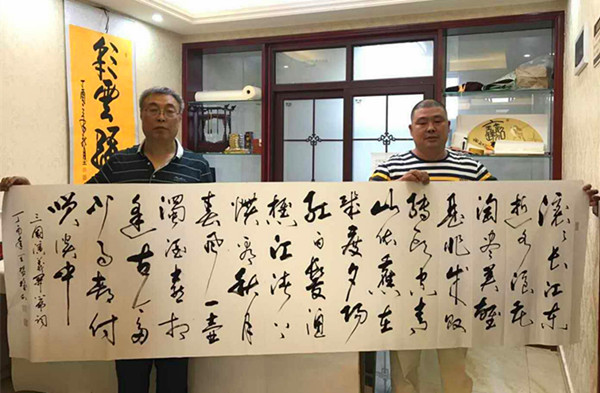 滚々长江东
逝水浪花
淘尽英雄
是非成败
转头空青
山依旧在
几度夕阳
红白发渔
樵江渚上
惯看秋月
春风一壶
浊酒喜相
逢古今多
少事都付
笑谈中
三国演义开篇词
丁酉年
雲